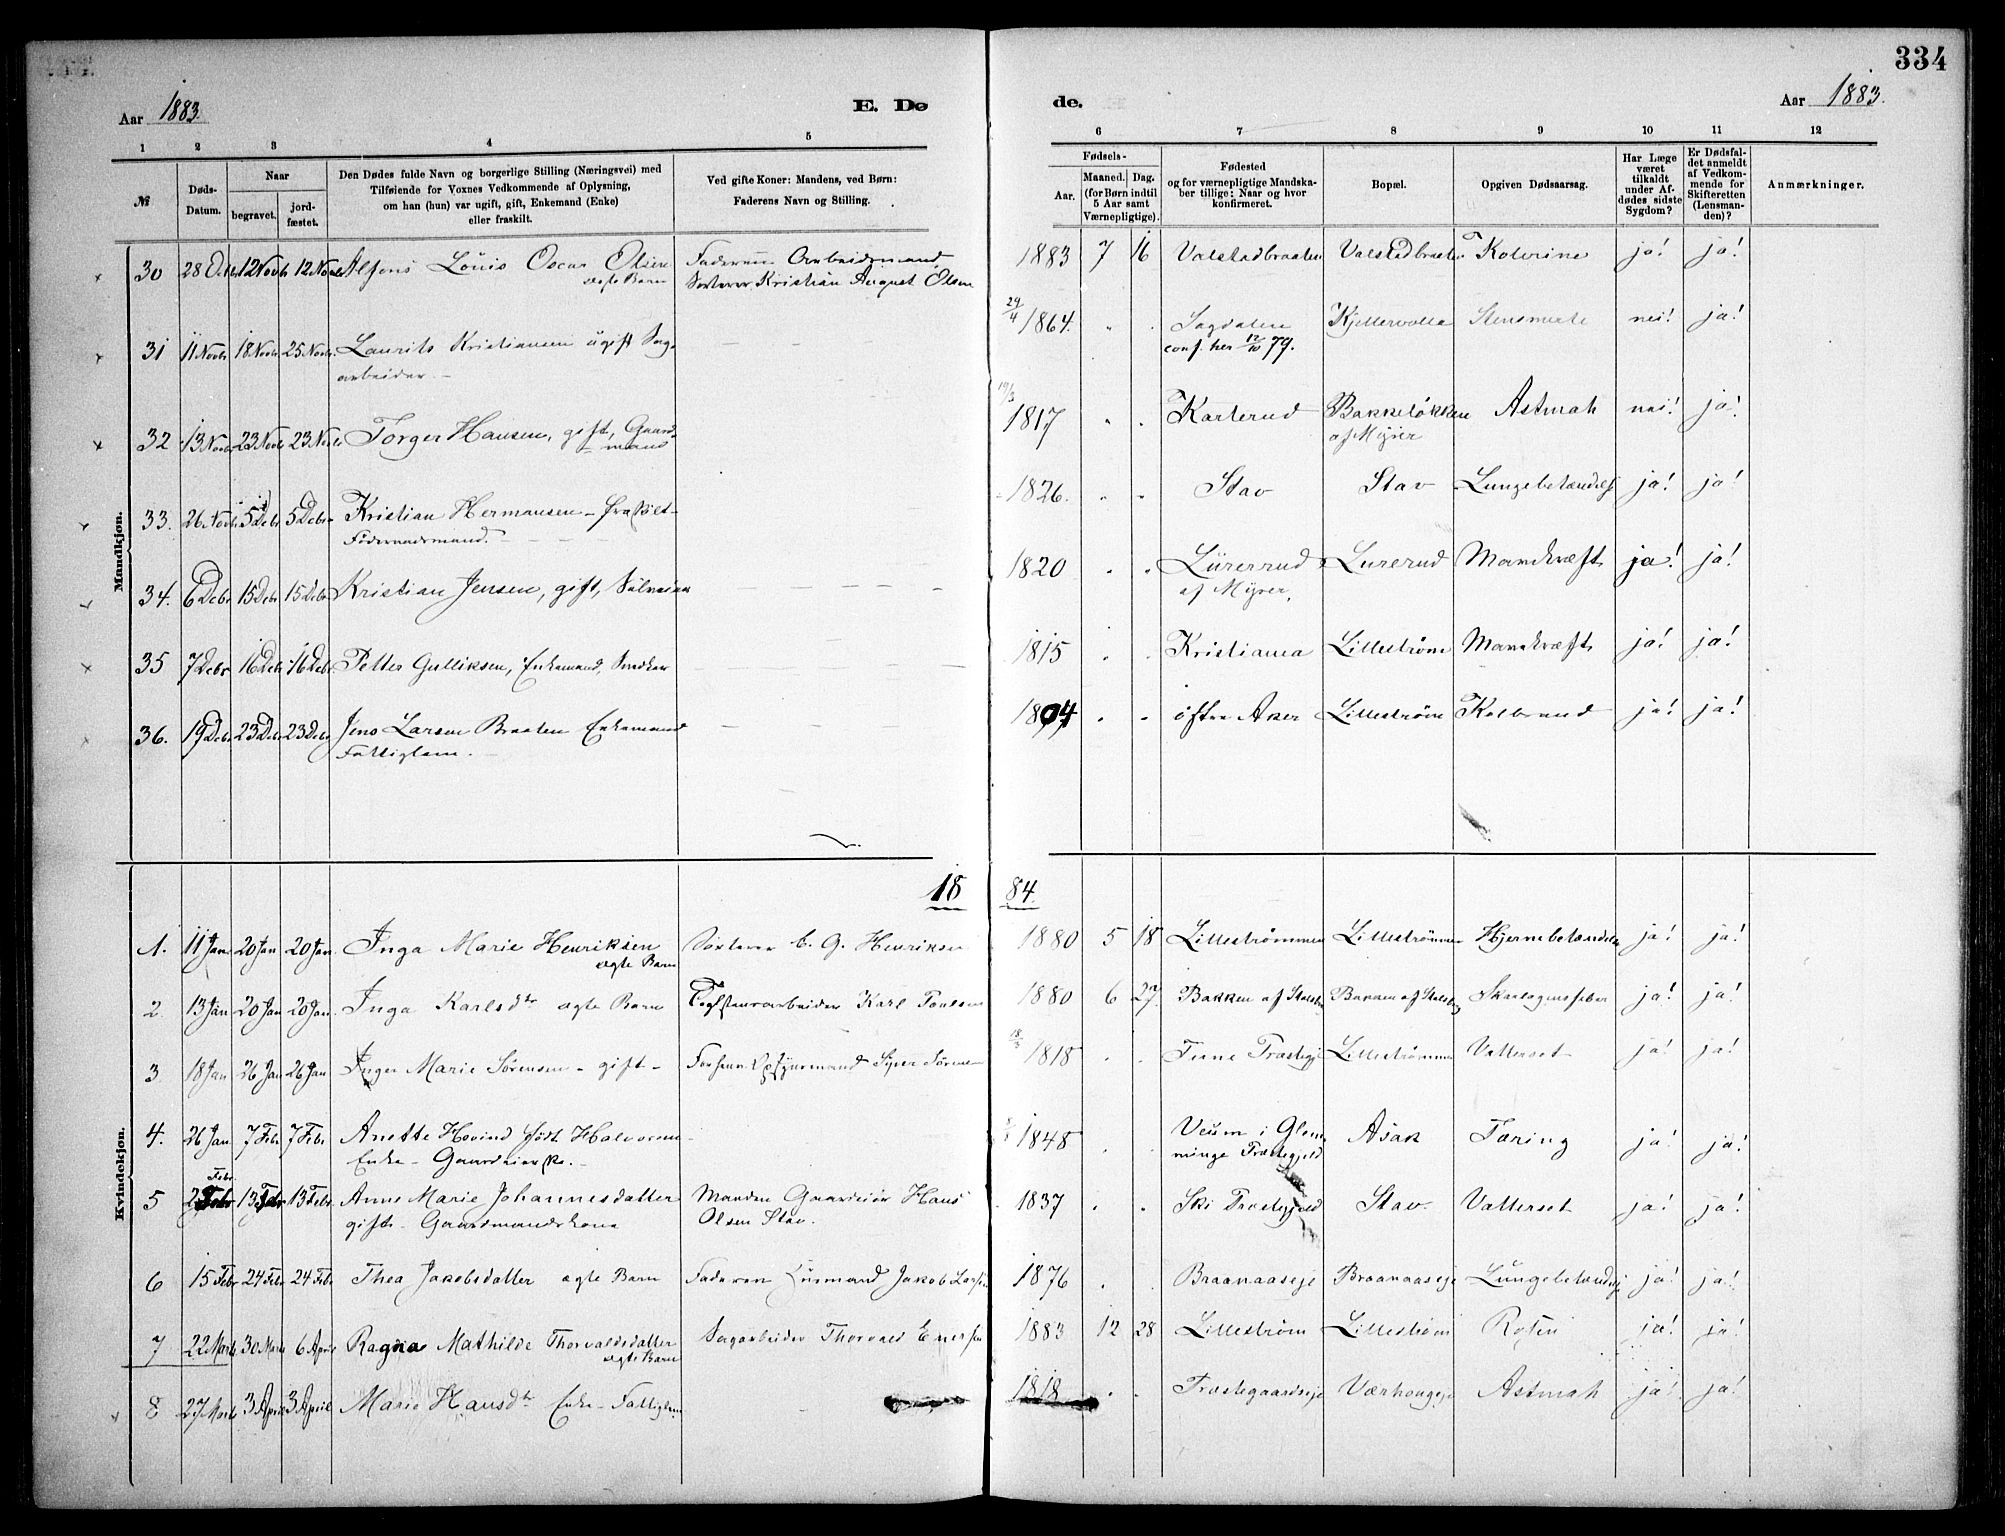 334
Aar 1883.
E. Dø
de.
Aar 1883.
1 2 3 4 5
6 7 8 9 10 11 12
№
Døds-Datum.
Naar
begravet.
jord-fæstet.
Den Dødes fulde Navn og borgerlige Stilling (Næringsvei) med
Tilføiende for Voxnes Vedkommende af Oplysning,
om han (hun) var ugift, gift, Enkemand (Enke)
eller fraskilt.
Ved gifte Koner: Mandens, ved Børn:
Faderens Navn og Stilling.
Fødsels-
Aar.
Maaned. Dag.
(for Børn indtil
5 Aar samt
Værnepligtige).
Fødested
og for værnepligtige Mandska-
ber tillige: Naar og hvor
konfirmeret.
Bopæl.
Opgiven Dødsaarsag.
Har Læge
været
tilkaldt
under Af-
dødes sidste
Sygdom?
Er Dødsfal-
det anmeldt
af Vedkom-
mende for
Skifteretten
(Lensman-
den)?
Anmærkninger.
Mandkjøn.
30 28 Octb 12 Novb 12 Novb Alfons Louis Oscar Olsen Faderen Arbeidsmand 1883 7 16 Valstadbraaten Valstadbraaten Kolerine ja! ja!
ægte Barn Sorterer Kristian August Olsen
31 11 Novbr 18 Novbr 25 Novbr. Laurits Kristiansen ugift Sag- 29/4 1864. Sagdalen Kjellervolla nei! ja!
arbeider. conf. her 12/10 79.
32 13 Novbr 23 Novb 23 Novb Torger Hansen, gift, Gaard- 19/3 1817 Karterud Bakkeløkken Astmah nei! ja!
mand af Myrer
33. 26 Novb 5 Db 5 Debr Kristian Hermansen - fraskilt - 1826. Stav Stav Lungebetændelse ja! ja!
Føderaadsmand.
34. 6 Debr 15 Debr 15 Debr Kristian Jensen, gift, 1820 Lurerud Lurerud Mavekræft ja! ja!
af Myrer,
35 7 Debr 16 Deb 16 Debr Petter Gulliksen, Enkemand, Snedker 1815 Kristiania Lillestrøm Mavekræft ja! ja!
36. 19 Debr 23 Debr 23 Debr Jens Larsen Braaten Enkemand 1804 østre Aker Lillestrøm Kolbrand ja! ja!
Fattiglem.
1884.
Kvindekjøn.
1. 11 Jan 20 Jan 20 Jan Inga Marie Henriksen Sorterer C. G. Henriksen 1880 5 18 Lillestrømmen Lillestrømmen Hjernebetændelse ja! ja!
ægte Barn
2 13 Jan 20 Jan 20 Jan Inga Karlsdtr ægte Barn Teglstensarbeider Karl Paulsen 1880 6 27. Bakken af Skarlagensfeber ja! ja!
3 18 Jan 26 Jan 26 Jan Inger Marie Sørensen - gift - 18/3 1818 Lillestrømmen Vattersot ja! ja!
4. 26 Jan 7 Febr 7 Febr Anette Hovind født Halvorsen 1848 Veum i Glem- Asak Tæring ja! ja!
Enke - Gaardeierske. minge Præstegjeld
5 2 Febr 13 Febr 13 Febr Anne Marie Johannesdatter Manden Gaardeier Hans 1837 Ski Præstegjeld Stav. Vattersot ja! ja!
gift - Gaardmandskone Olsen Stav.
6 15 Febr 24 Febr 24 Febr Thea Jakobsdatter ægte Barn Faderen Husmand Jakob Larsen 1876 Braanaaseje Braanaaseje Lungebetændelse ja! ja!
7 22 Marts 30 Marts 6 April Ragna Mathilde Thorvaldsdatter Sagarbeider Thorvald 1883 12 28 Lillestrøm Lillestrøm Rosen ja! ja!
ægte Barn
8 27 Marts 3 April 3 April Marie Hansdtr Enke - Fattiglem 1818 Præstegaardseje Værhougeje Astmah ja! ja!